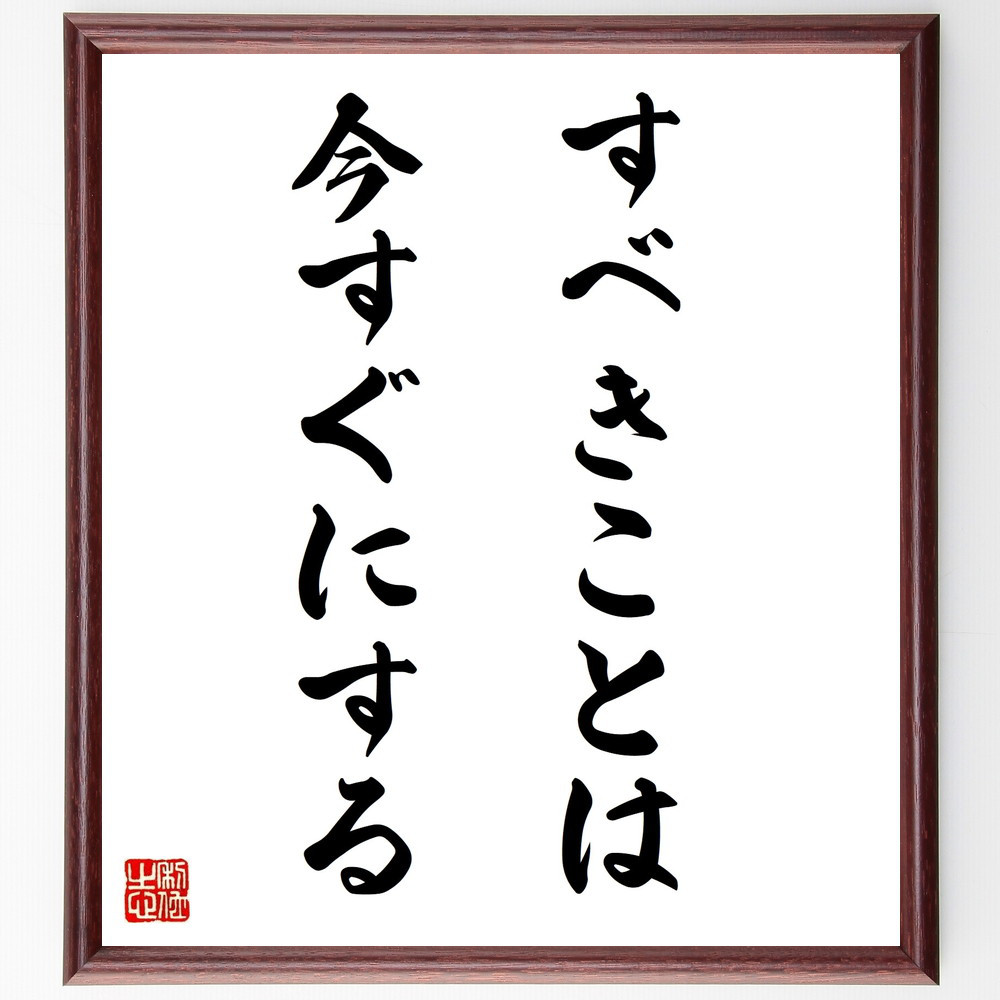 すべきことは
今すぐにする